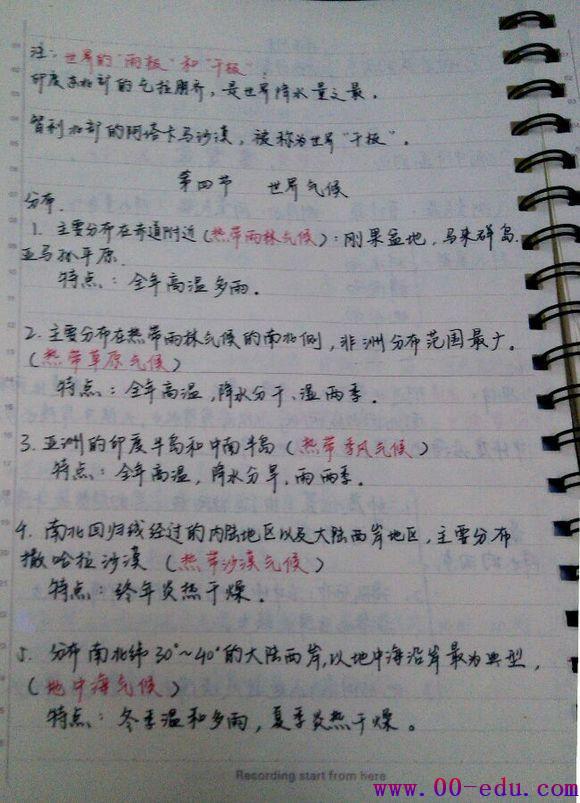 注：世界的"雨极"和"干极"：
印度东北部的乞拉朋齐，是世界降水量之最。
智利北部的阿塔卡马沙漠，被称为世界"干极"。
第四节 世界气候
分布.
1. 主要分布在赤道附近(热带雨林气候)：刚果盆地，马来群岛
亚马孙平原.
特点：全年高温多雨.
2. 主要分布在热带雨林气候的南北侧，非洲分布范围最广。
(热带草原气候)
特点：全年高温，降水分干、湿两季.
3. 亚洲的印度半岛和中南半岛(热带季风气候)
特点：全年高温，降水分旱、雨两季.
4. 南北回归线经过的内陆地区以及大陆西岸地区，主要分布
撒哈拉沙漠(热带沙漠气候)
特点：终年炎热干燥.
5. 分布南北纬30°~40°的大陆西岸,以地中海沿岸最为典型，
(地中海气候)
特点：冬季温和多雨，夏季炎热干燥。
Recording start from here
www.00-edu.com